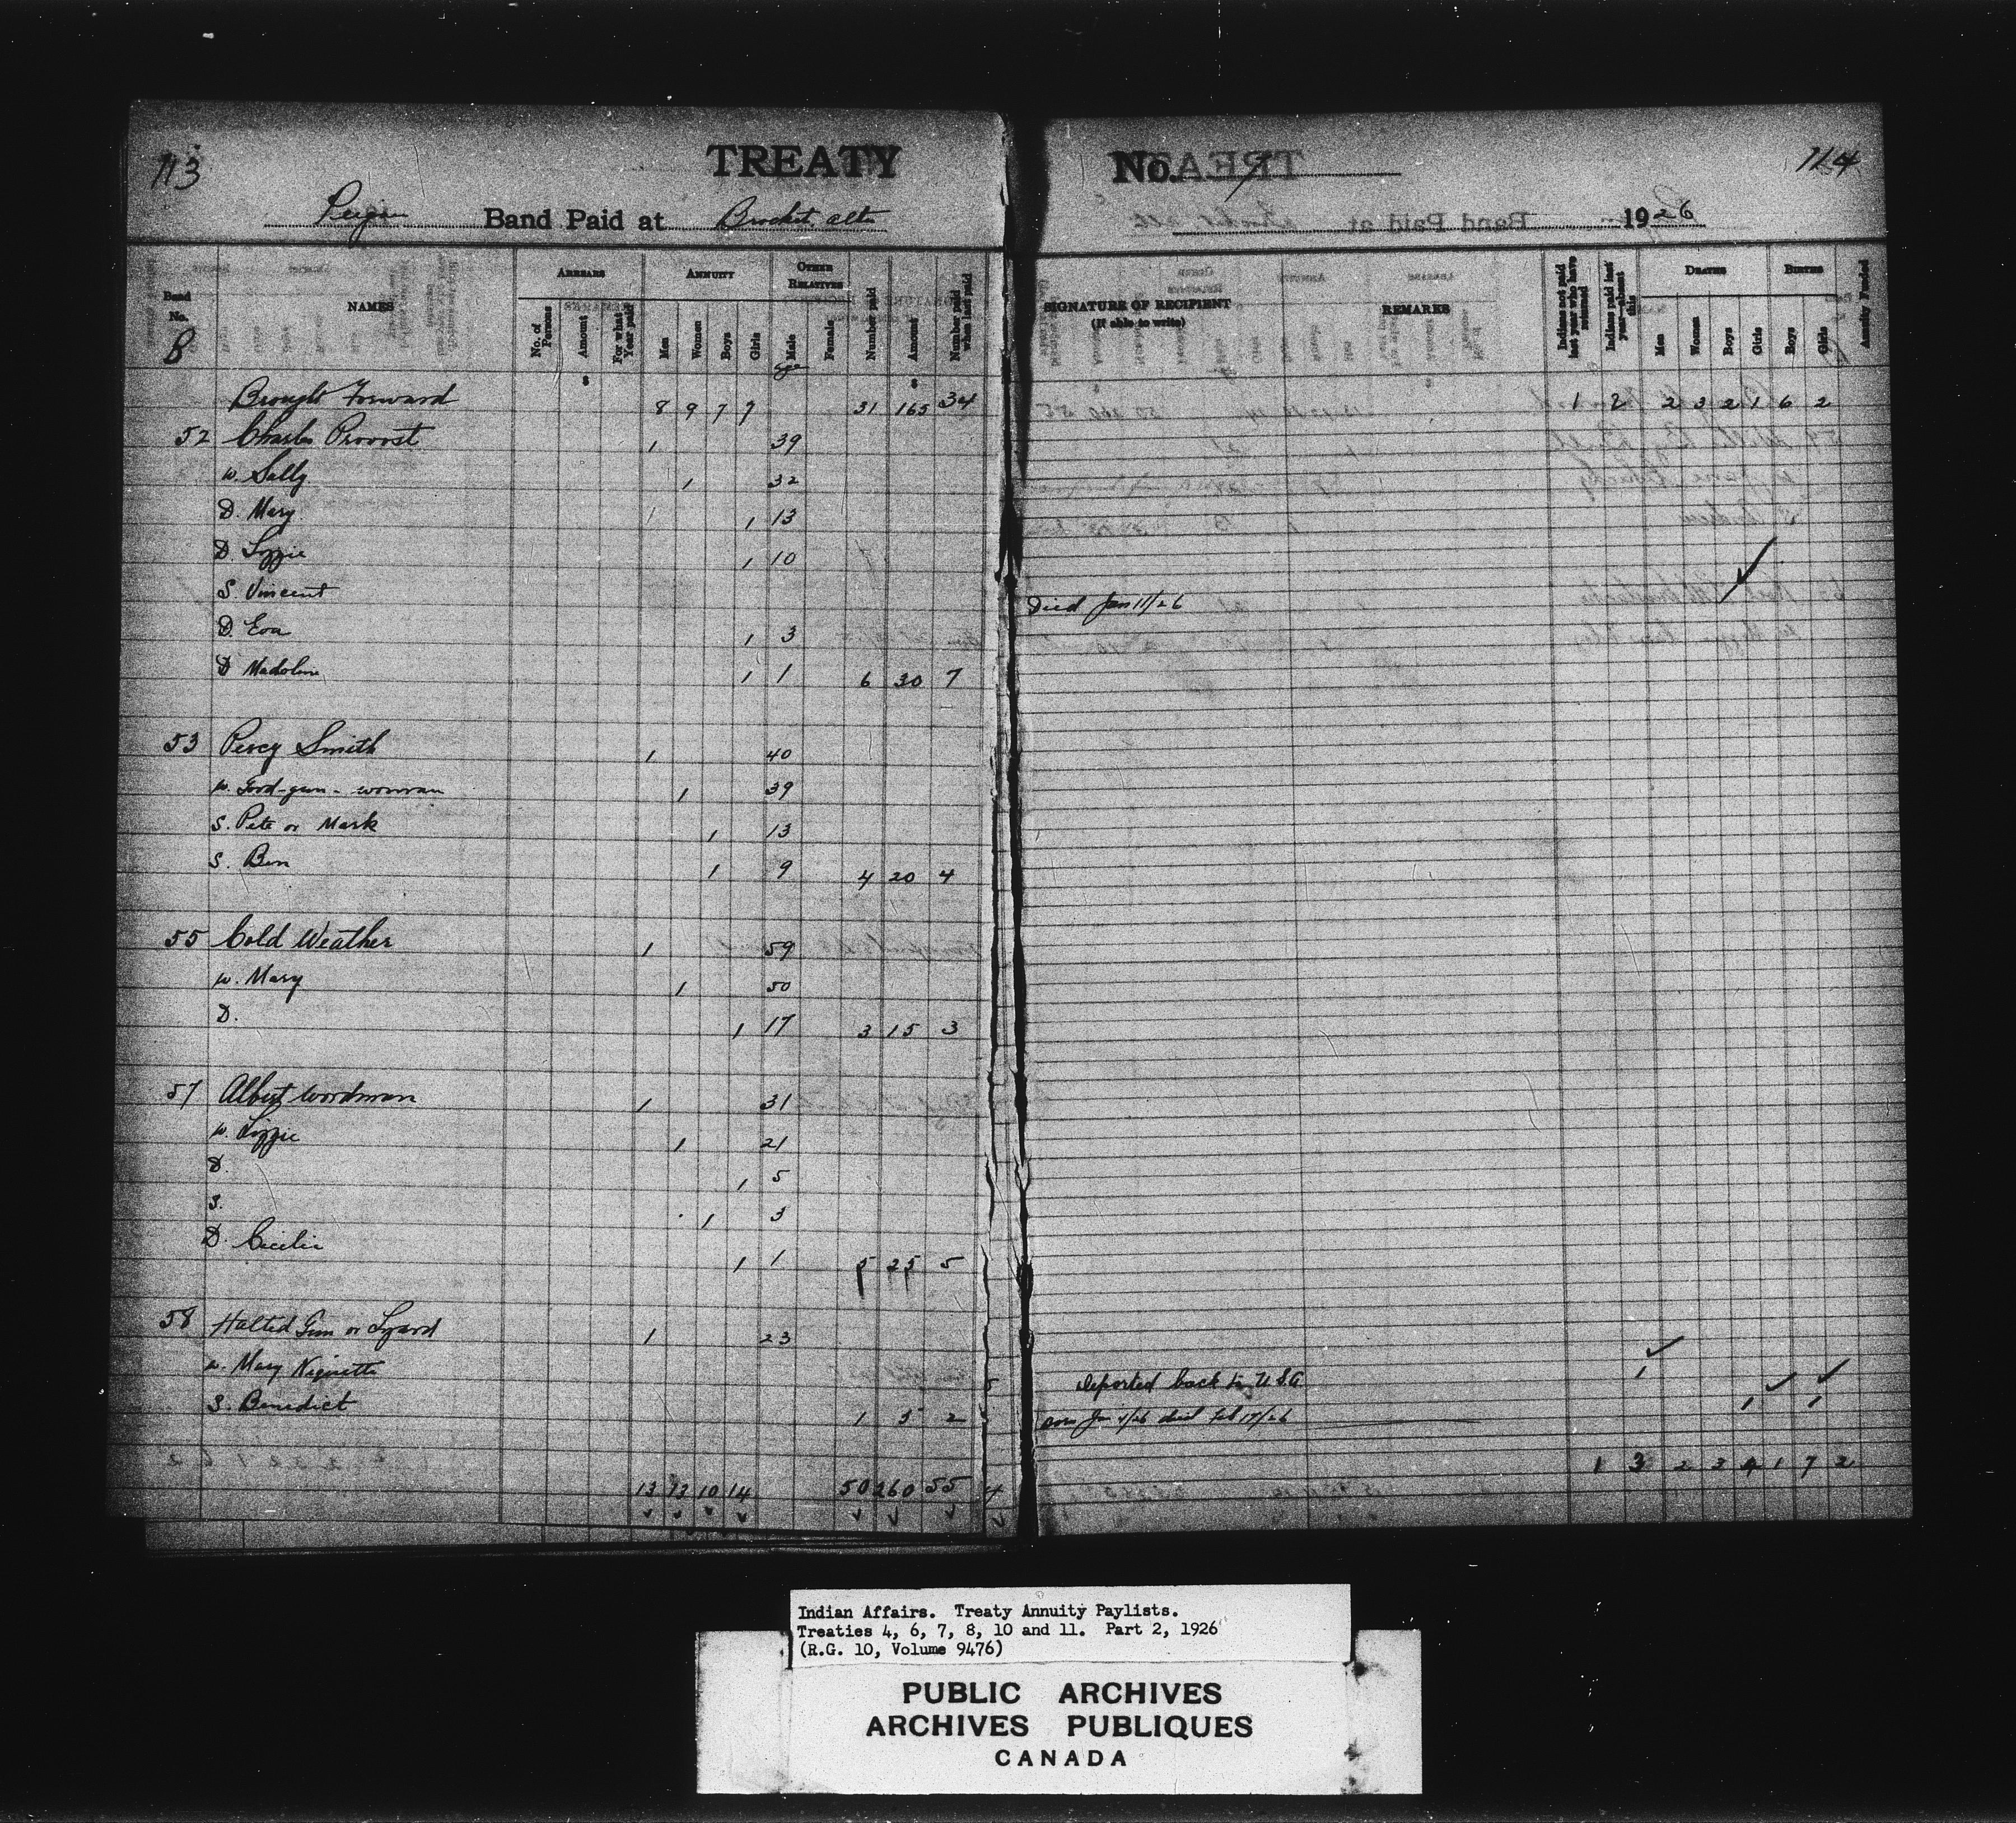 113
TREATY
No. 7
114
Peigan Band Paid at Brocket Alta
1926
Band No.
NAMES
ARREARS
ANNUITY
OTHER RELATIVES
No. of Persons
Amount
For what Year paid
Men
Women
Boys
Girls
Male
Female
Number paid
Amount
Number paid when last paid
SIGNATURE OF RECIPIENT
(If able to write)
REMARKS
Indians not paid last year who have returned
Indians paid last year—absent this
DEATHS
BIRTHS
Men
Women
Boys
Girls
Boys
Girls
Annuity Funded
B
age
$ $
Brought Forward 8 9 7 7 31 165 34 1 2 2 3 2 1 6 2
52 Charles Provost 1 39
W. Sally 1 32
D. Mary 1 13
D. Lizzie 1 10
S. Vincent Died Jan 11/26
D. Eva 1 3
D Madoline 1 1 6 30 7
53 Percy Smith 1 40
W. Good-gun-woman 1 39
S. Pete or Mark 1 13
S. Ben 1 9 4 20 4
55 Cold Weather 1 59
W. Mary 1 50
D. 1 17 3 15 3
57 Albert Woodman 1 31
W. Lizzie 1 21
D. 1 5
S. 1 3
D. Cecilia 1 1 5 25 5
58 Halted Gun or Lizard 1 23
W. Mary Deported back to U.S.A 1
S. Benedict 1 5 2 Born Jan 4/26 died Feb 17/26 1 1
13 13 10 14 50 260 55 4 1 3 2 3 4 1 7 2
Indian Affairs. Treaty Annuity Paylists.
Treaties 4, 6, 7, 8, 10 and 11. Part 2, 1926
(R.G. 10, Volume 9476)
PUBLIC ARCHIVES
ARCHIVES PUBLIQUES
CANADA